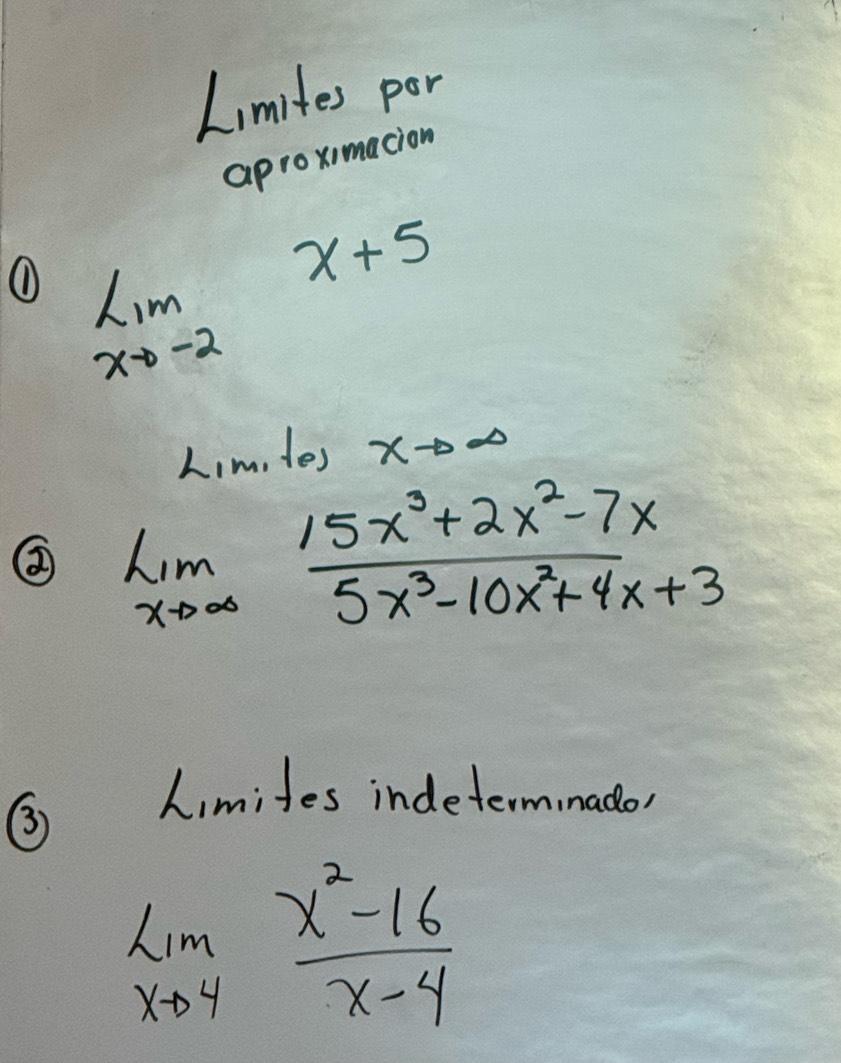 Limites por
aproximacion
① Lim x→-2 x+5
Limites x→∞
② Lim x→∞ (15x³+2x²-7x)/(5x³-10x²+4x+3)
③ Limites indeterminados
Lim x→4 (x²-16)/(x-4)